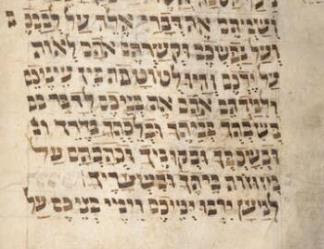 ושמתם את דברי אלה על לבבכם
ועל נפשכם וקשרתם אתם לאות
על ידכם והיו לטוטפת בין עיניכם
ולמדתם אתם את בניכם לדבר בם
בשבתך בביתך ובלכתך בדרך
ובשכבך ובקומך וכתבתם על
מזוזות ביתך ובשעריך
למען ירבו ימיכם וימי בניכם על